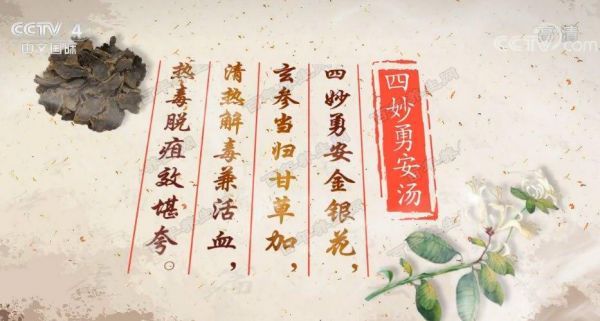 CCTV 4
中文国际
高清
CCTV.com
四妙勇安汤
四妙勇安金银花，
玄参当归甘草加，
清热解毒兼活血，
热毒脱疽效堪夸。